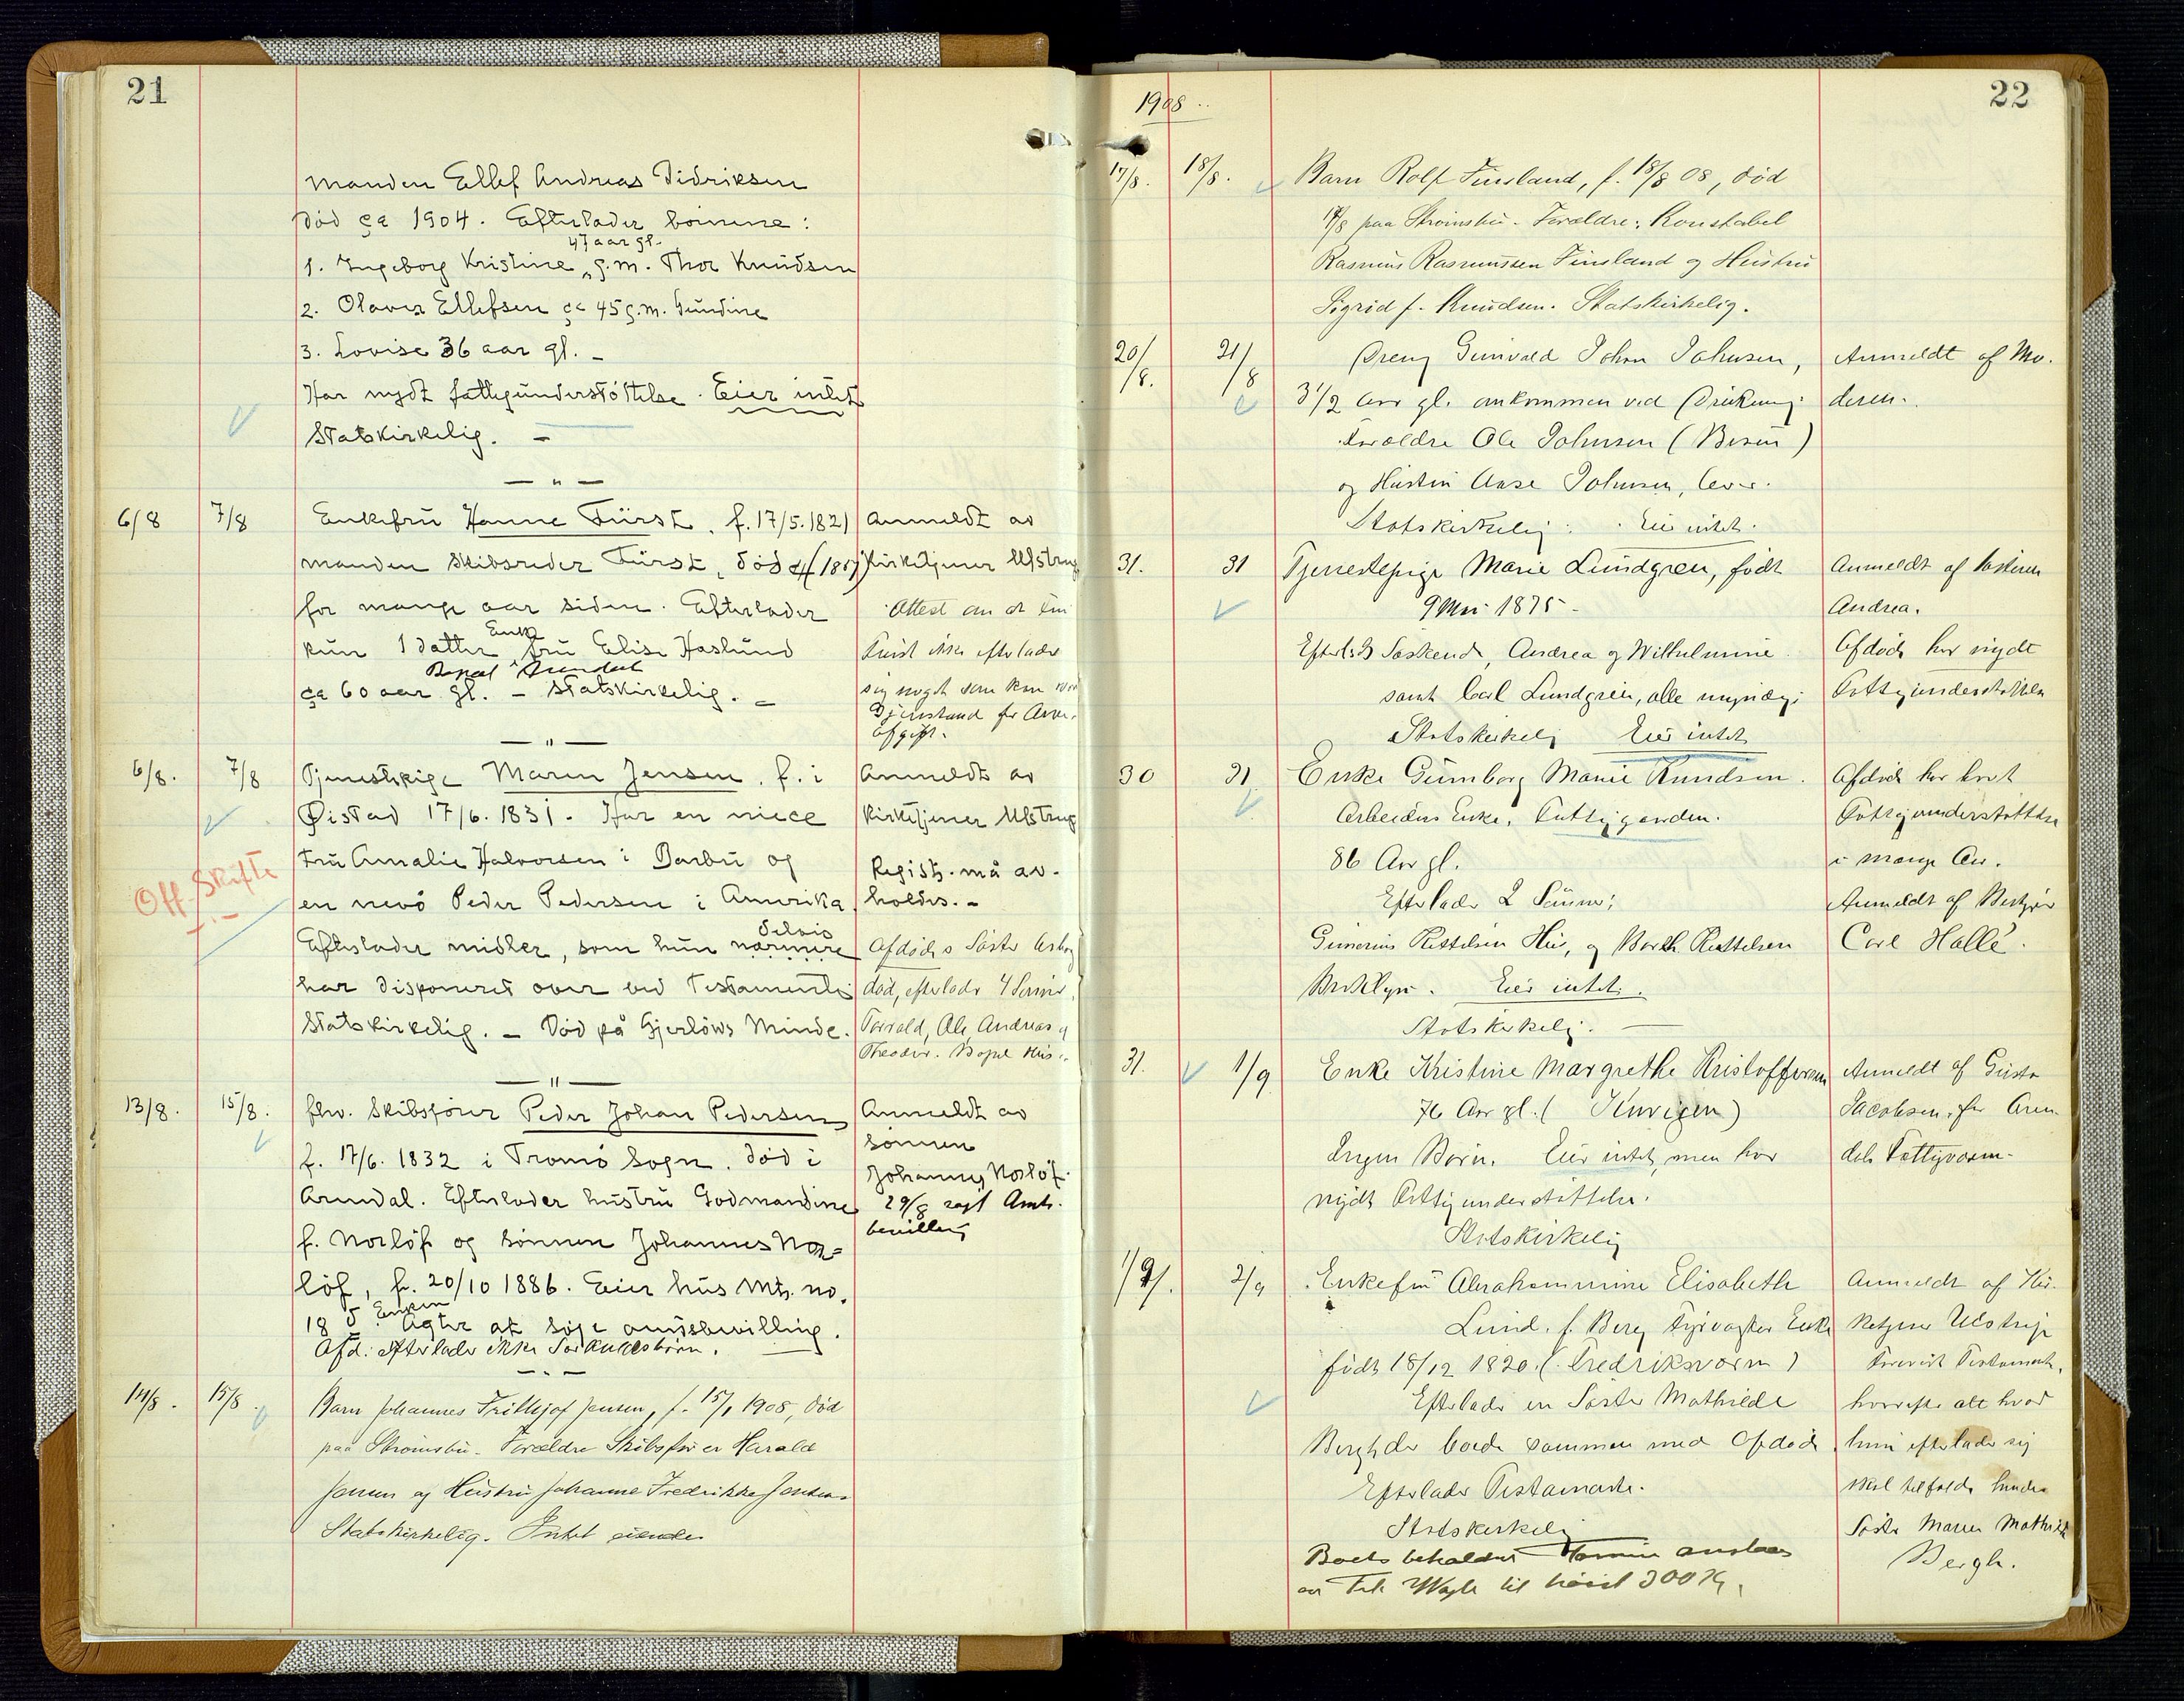 21
manden Ellef Andreas Didriksen
død ca 1904. Efterlader børnene:
47 aar gl.
1. Ingeborg Kristine, g.m. Thor Knudsen
2. Olaves Ellefsen ca 45 g.m. Gundine
3. Lovise 36 aar gl. -
Har nydt fattigunderstøttelse. Eier intet
Statskirkelig. -
6/8 7/8 Enkefru Hanne Fürst, f. 17/5.1821 Anmeldt av
manden Skibsreder Fürst, død (1857) Kirketjener Ulstrup
for mange aar siden. Efterlader Attest om at
Enke
kun 1 datter fru Elise Haslund Fürst ikke efterlader
Bopæl Arendal
ca 60 aar gl. - Statskirkelig. - sig noget som kan
Gjenstand for Arve-
afgift.
6/8. 7/8 Tjenestepige Maren Jensen, f. i Anmeldt av
Øistad 17/6.1831. Har en niece Kirketjener Ulstrup
Fru Amalie Halvorsen i Barbu og Regist. må av-
Off. Skifte
en nevø Peder Pedersen i Amerika. holdes. -
delvis
Efterlader midler, som hun nærmere Afdødes Søster
har disponeret over ved Testamente død, efterlader 4 Sønner,
Statskirkelig. - Død på Gjerløws Minde. Torvald, Ole, Andreas og
Theodor. Bopæl His
13/8. 15/8. fhv. Skibsfører Peder Johan Pedersen Anmeldt av
f. 17/6. 1832 i Tromø Sogn. død i sønnen
Johannes Norløf.
Arendal. Efterlader hustru Godmandine 29/8 søgt Amts-
bevilling
f. Norløf og sønnen Johannes Nor=
løf, f. 20/10 1886. Eier hus Mtr. no.
18 d Enken agter at søge amtsbevilling.
Afd: efterlader ikke Særkuldsbørn.
14/8. 15/8. Barn Johannes Frithjof Jensen, f. 15/1 1908, død
paa Strømsbu. Forældre Skibsfører Harald
Jensen og Hustru Johanne Fredrikke Jensen
Statskirkelig. Intet eiende
22
1908
17/8. 18/8. Barn Rolf Finsland, f. 18/8 08, død
17/8 paa Strømsbu. Forældre: Konstabel
Rasmus Rasmussen Finsland og Hustru
Sigrid f. Knudsen. Statskirkelig.
20/8. 21/8 Dreng Gunvald Johan Johnsen, Anmeldt af Mo-
3 1/2 Aar gl. omkommen ved Drukning deren.
Forældre Ole Johnsen (Besøn)
og Hustru Aase Johnsen, lever.
Statskirkelig. Eier intet.
31. 31 Tjenestepige Marie Lundgren, født Anmeldt af Søsteren
9 Mai 1875. Andrea.
Efterlod Søskende, Andrea og Wilhelmine Afdøde har nydt
samt Carl Lundgren, alle myndige Fattigunderstøttelse
Statskirkelig Eier intet
30 31 Enke Gunborg Marie Knudsen. Afdøde har havt
Arbeiders Enke, Fattiggaarden. Fattigunderstøttelse
86 Aar gl. i mange Aar.
Efterlader 2 Sønner; Anmeldt af Bestyrer
Gunerius Kettelsen His, og Barth. Kettelsen Carl Halle.
Brooklyn. Eier intet.
Statskirkelig.
31. 1/9 Enke Kristine Margrethe Kristoffersen Anmeldt af Gusta
76 Aar gl. ( ) Jacobsen, for Aren-
Ingen Børn. Eier intet, men har dals Fattigvæsen.
nydt Fattigunderstøttelse.
Statskirkelig
1/9. 2/9 Enkefru Abrahammine Elisabeth Anmeldt af Kir-
Lund. f. Berg Fyrvogter Enke ketjener Ulstrup
født 18/12 1820. (Fredriksværn) Testamente,
Efterlader en Søster Mathilde hvorefter alt hvad
Bergh der boede sammen med Afdøde hun efterlader sig
Efterlader Testamente. skal tilfalde hendes
Statskirkelig Søster Maren Mathilde
Boets beholdne Formue anslaaes Bergh.
av Frk til høist 300 Kr.